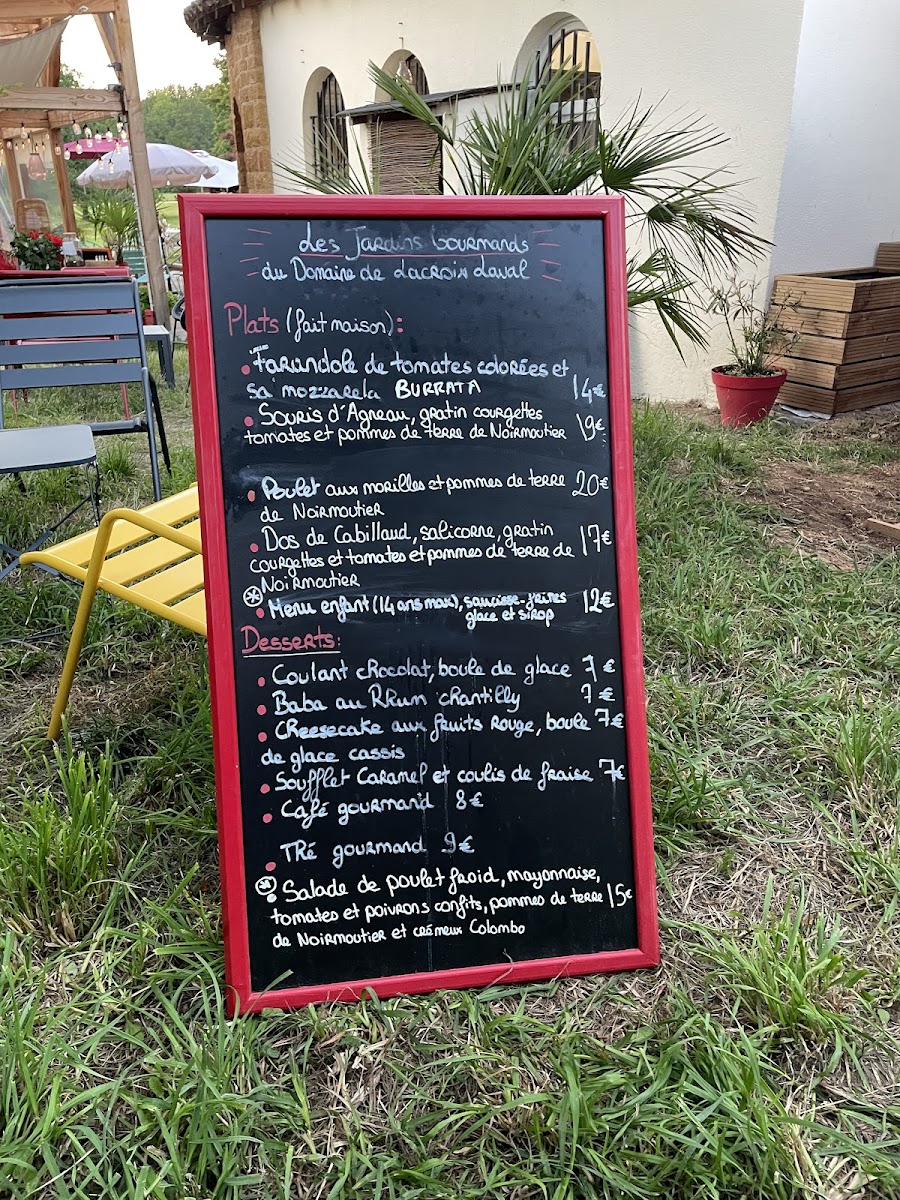 Les Jardins Gourmands
du Domaine de Lacroix Laval
Plats (fait maison):
Farandole de tomates colorées et
sa mozzarela BURRATA 14€
Souris d'Agneau, gratin courgettes
tomates et pommes de terre de Noirmoutier 19€
Poulet aux morilles et pommes de terre 20€
de Noirmoutier
Dos de Cabillaud, salicorne, gratin
courgettes et tomates et pommes de terre de 17€
Noirmoutier
Menu enfant (14 ans max), saucisse-frites 12€
glace et sirop
Desserts:
Coulant chocolat, boule de glace 7€
Baba au Rhum chantilly 7€
Cheesecake aux fruits Rouge, boule 7€
de glace cassis
Soufflet Caramel et coulis de fraise 7€
Café gourmand 8€
Thé gourmand 9€
Salade de poulet froid, mayonnaise,
tomates et poivrons confits, pommes de terre 15€
de Noirmoutier et crémeux Colombo